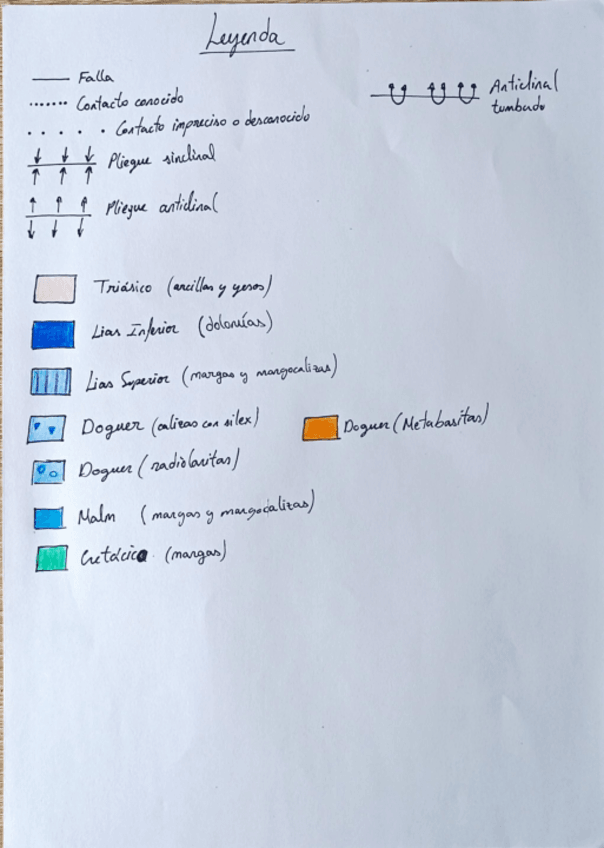 Leyenda
Falla
Contacto conocido
Contacto impreciso o desconocido
Pliegue sinclinal
Pliegue anticlinal
Anticlinal
tumbado
Triásico (arcillas y yesos)
Lias Inferior (dolomías)
Lias Superior (margas y margocalizas)
Dogger (calizas con silex)
Dogger (Metabasitas)
Dogger (radiolaritas)
Malm (margas y margocalizas)
Cretácico (margas)